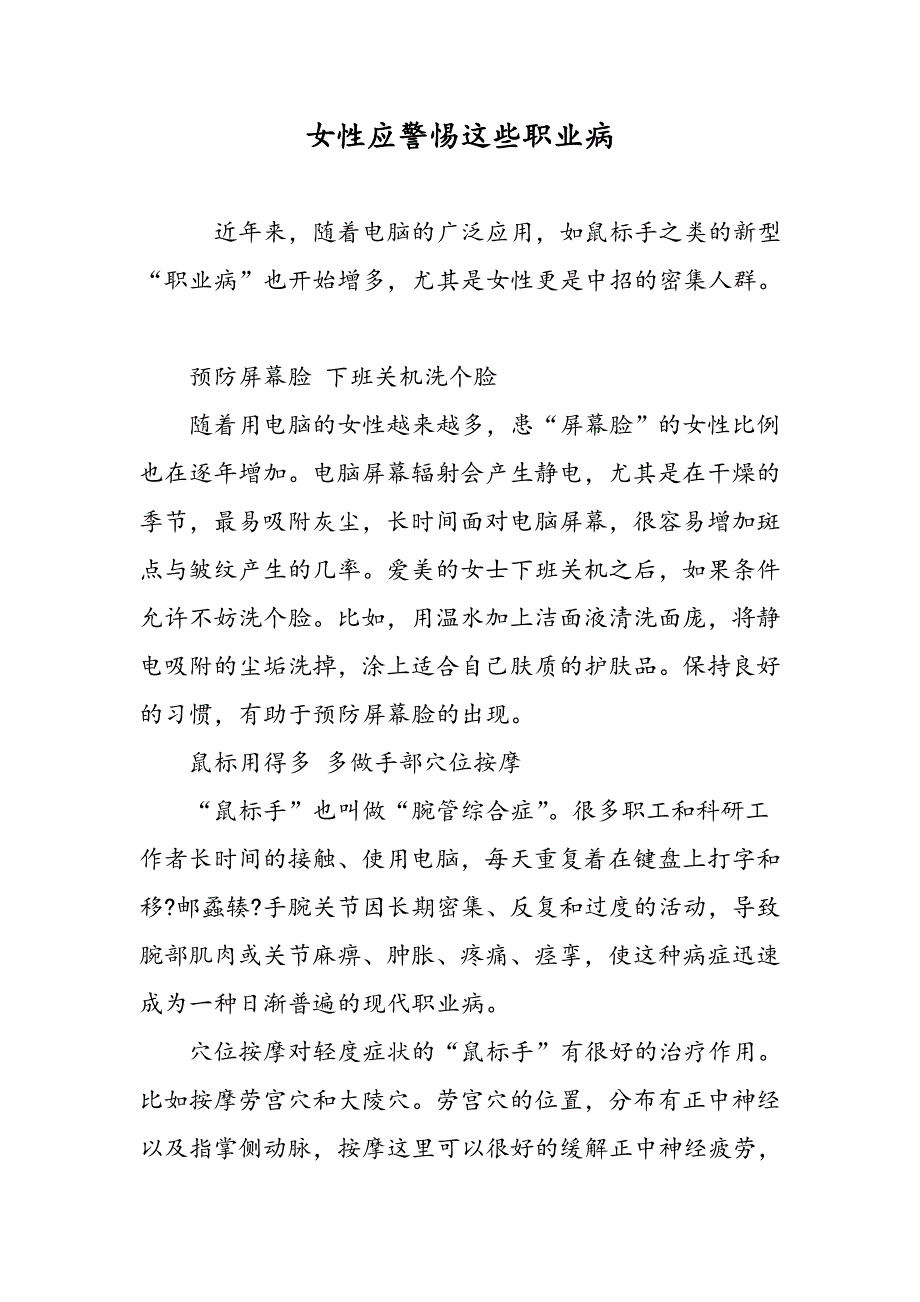 女性应警惕这些职业病
近年来，随着电脑的广泛应用，如鼠标手之类的新型
“职业病”也开始增多，尤其是女性更是中招的密集人群。
预防屏幕脸 下班关机洗个脸
随着用电脑的女性越来越多，患“屏幕脸”的女性比例
也在逐年增加。电脑屏幕辐射会产生静电，尤其是在干燥的
季节，最易吸附灰尘，长时间面对电脑屏幕，很容易增加斑
点与皱纹产生的几率。爱美的女士下班关机之后，如果条件
允许不妨洗个脸。比如，用温水加上洁面液清洗面庞，将静
电吸附的尘垢洗掉，涂上适合自己肤质的护肤品。保持良好
的习惯，有助于预防屏幕脸的出现。
鼠标用得多 多做手部穴位按摩
“鼠标手”也叫做“腕管综合症”。很多职工和科研工
作者长时间的接触、使用电脑，每天重复着在键盘上打字和
移?邮蟊辏?手腕关节因长期密集、反复和过度的活动，导致
腕部肌肉或关节麻痹、肿胀、疼痛、痉挛，使这种病症迅速
成为一种日渐普遍的现代职业病。
穴位按摩对轻度症状的“鼠标手”有很好的治疗作用。
比如按摩劳宫穴和大陵穴。劳宫穴的位置，分布有正中神经
以及指掌侧动脉，按摩这里可以很好的缓解正中神经疲劳，